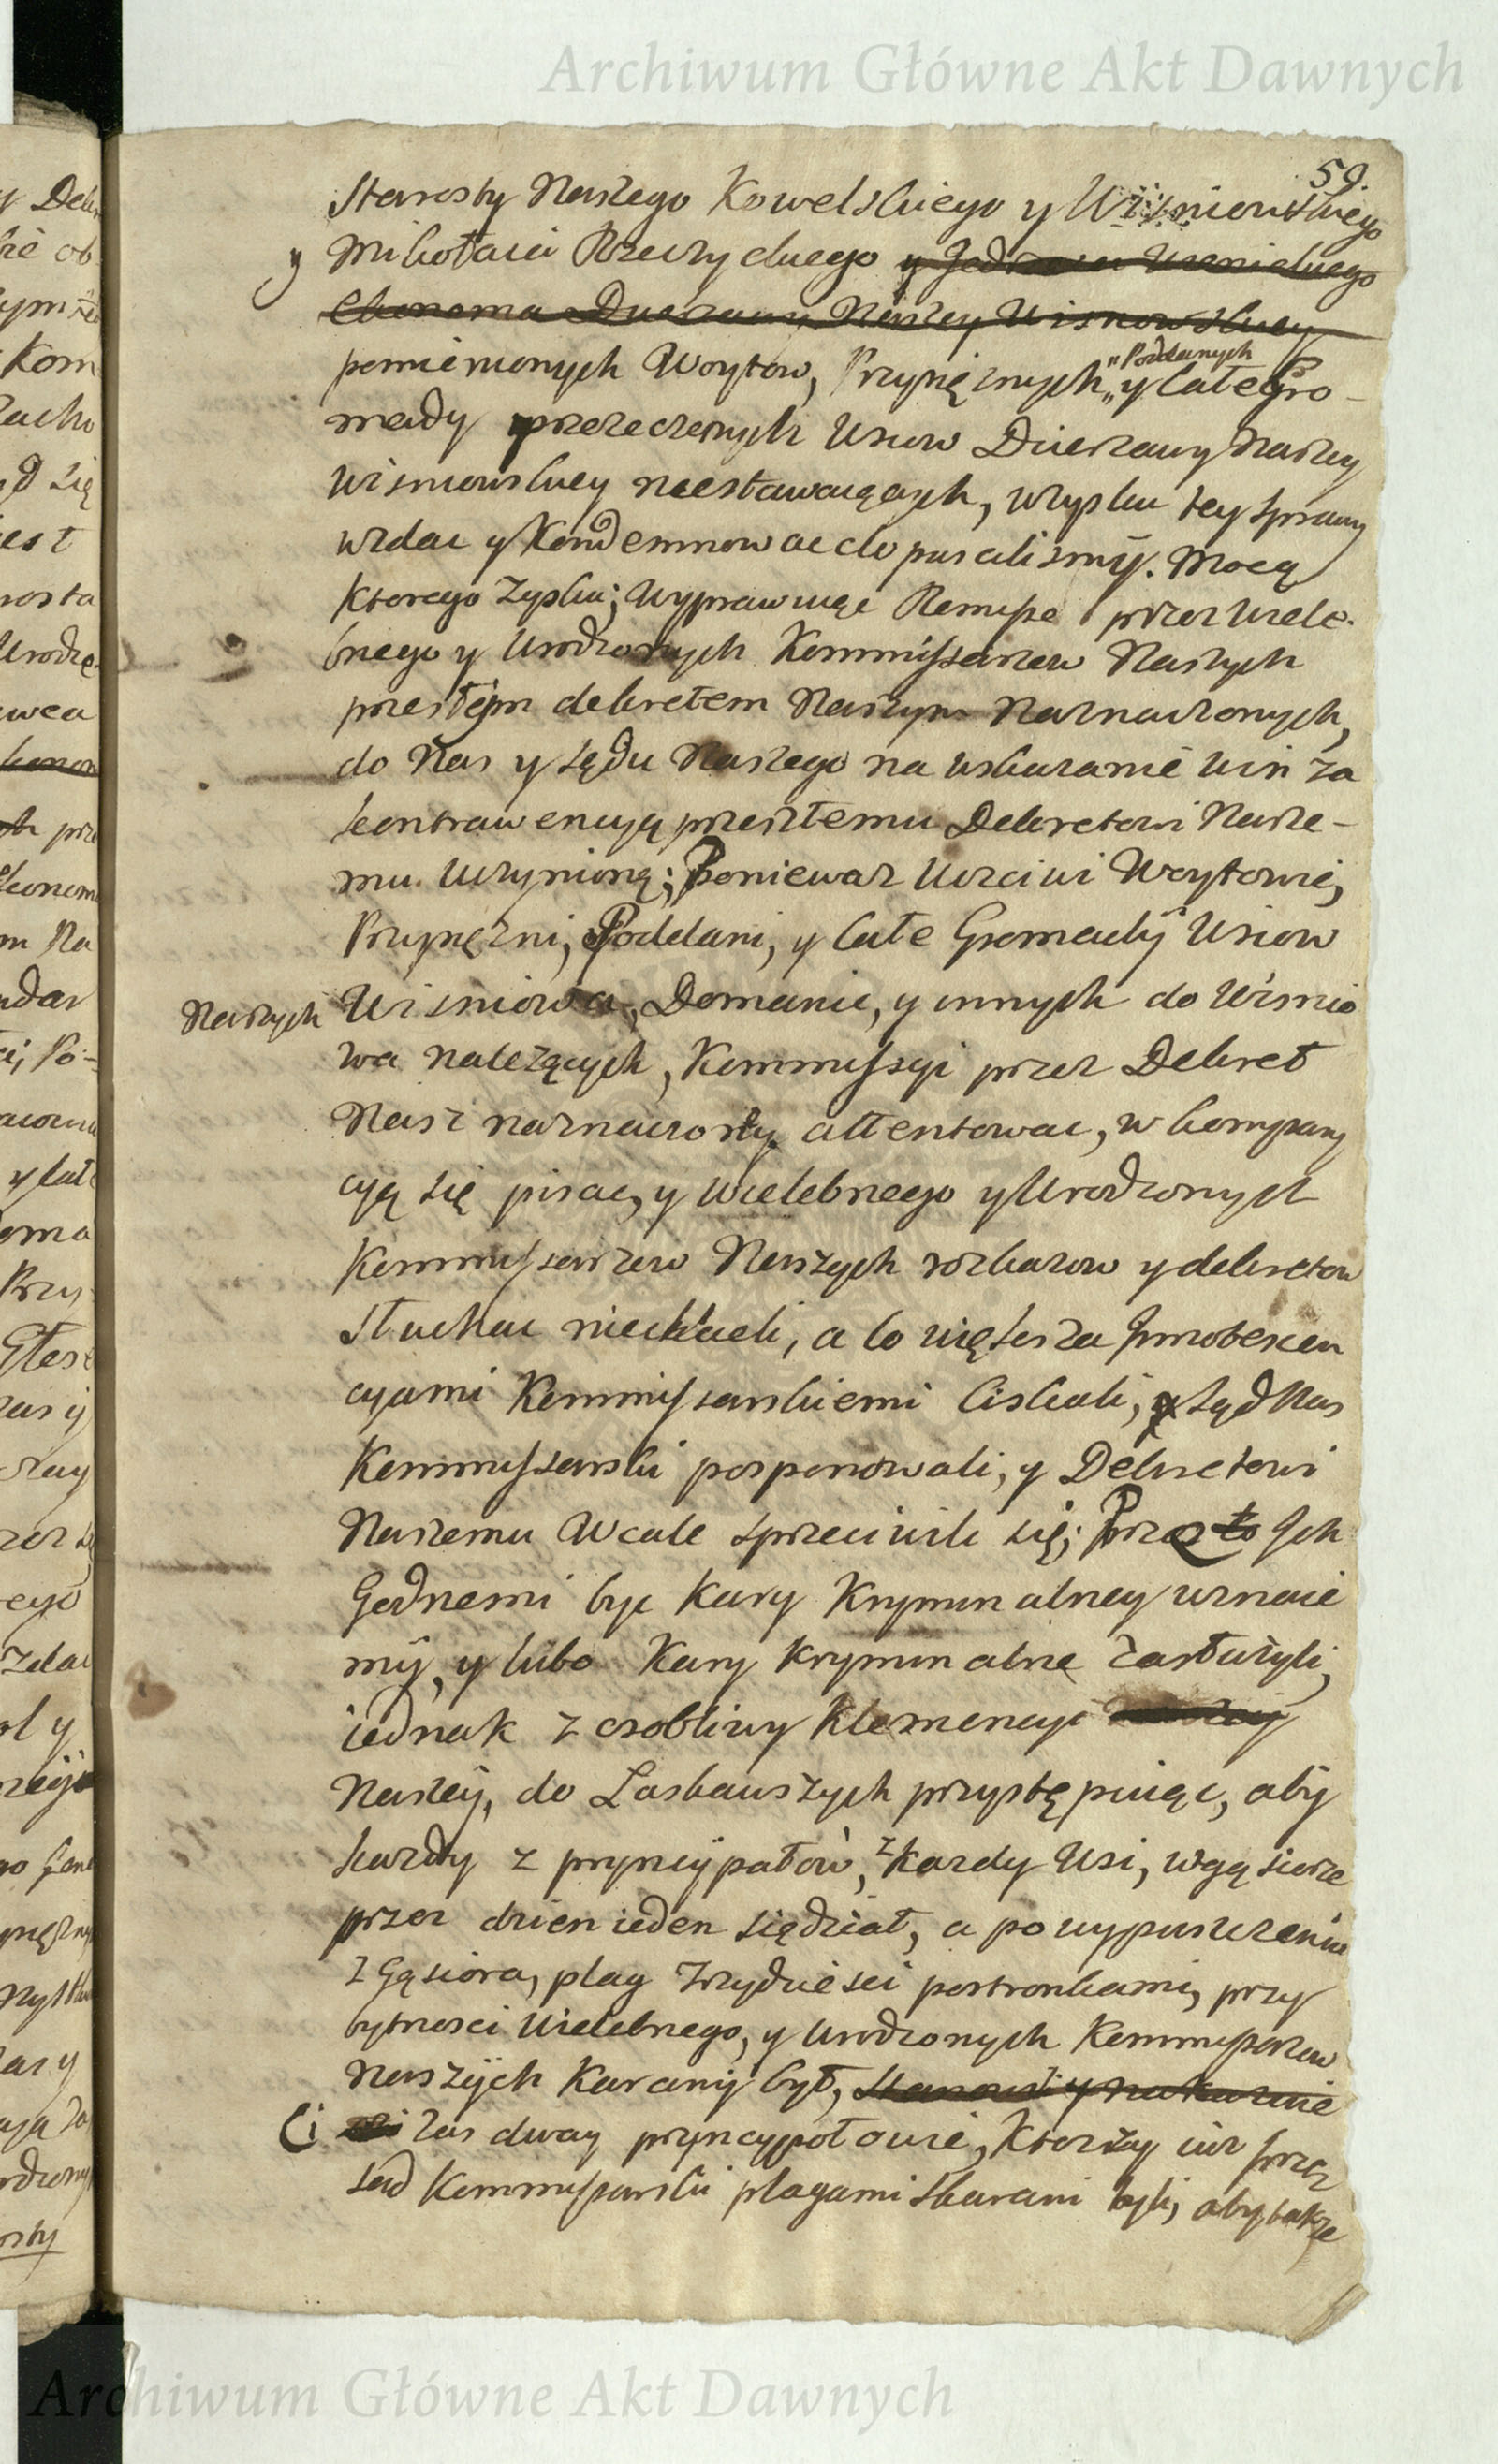 Archiwum Główne Akt Dawnych
59.
Starosty Naszego Kowelskiego y Wisniowskiego
y Mikołaia Rzeczyckiego y Jedrzeia
Ekonoma Dzierzawy Naszey Wisniowskiey
pomienionych Woytow, Przysięznych „Poddanych„ y całey Gro-
mady przerzeczonych Wsiow Dzierzawy Naszey
Wisniowskiey niestawaiących, w zysku tey sprawy
wzdac y Kondemnowac dopuscilismÿ. Mocą
ktorego Zysku; Wyprawuiąc Remisse przez Wiele-
bnego y Urodzonych Kommissarzow Naszych
przeszłÿm dekretem Naszym Naznaczonych,
do Nas y Sądu Naszego na wskazanie win za
kontrawencyą przeszłemu Dekretowi Nasze-
mu uczynioną; Poniewaz Uczciwi Woytowie,
Przysięzni, Poddani, y całe Gromadÿ Wsiow
Naszych Wisniowa, Domanic, y innych do Wisnio
wa należących, Kommissyi przez Dekret
Nasz naznaczony attentowac, w kompany
cyą się pisac, y Wielebnego y Urodzonych
Kommissarzow Naszych rozkazow y dekretow
słuchac niechcieli, a co większa Innobescen
cyami Kommissarskiemi ciskali, Sąd Nas
Kommissarski posponowali, y Dekretowi
Naszemu Wcale sprzeciwili się; Przeto Jch
Godnemi byc Kary Kryminalney uznaie
mÿ, y lubo Kary Kryminalnę zasłużyli,
iednak z osobliwy Klemencyi
Naszeÿ, do Łaskawszych przystępuiąc, abÿ
kazdy z pryncÿpałow, z kazdy Wsi, w gąsiorze
przez dzien ieden siędział, a po wypuszczeniu
z Gąsiora, plag trzydziesci postronkami, przy
bytnosci Wielebnego, y Urodzonych Kommissarzow
Naszÿch Karanÿ był,
Ci zas dway pryncypałowie, Ktorzy iuz przez
sąd Kommissarski plagami skarani byli, aby takze
Archiwum Główne Akt Dawnych